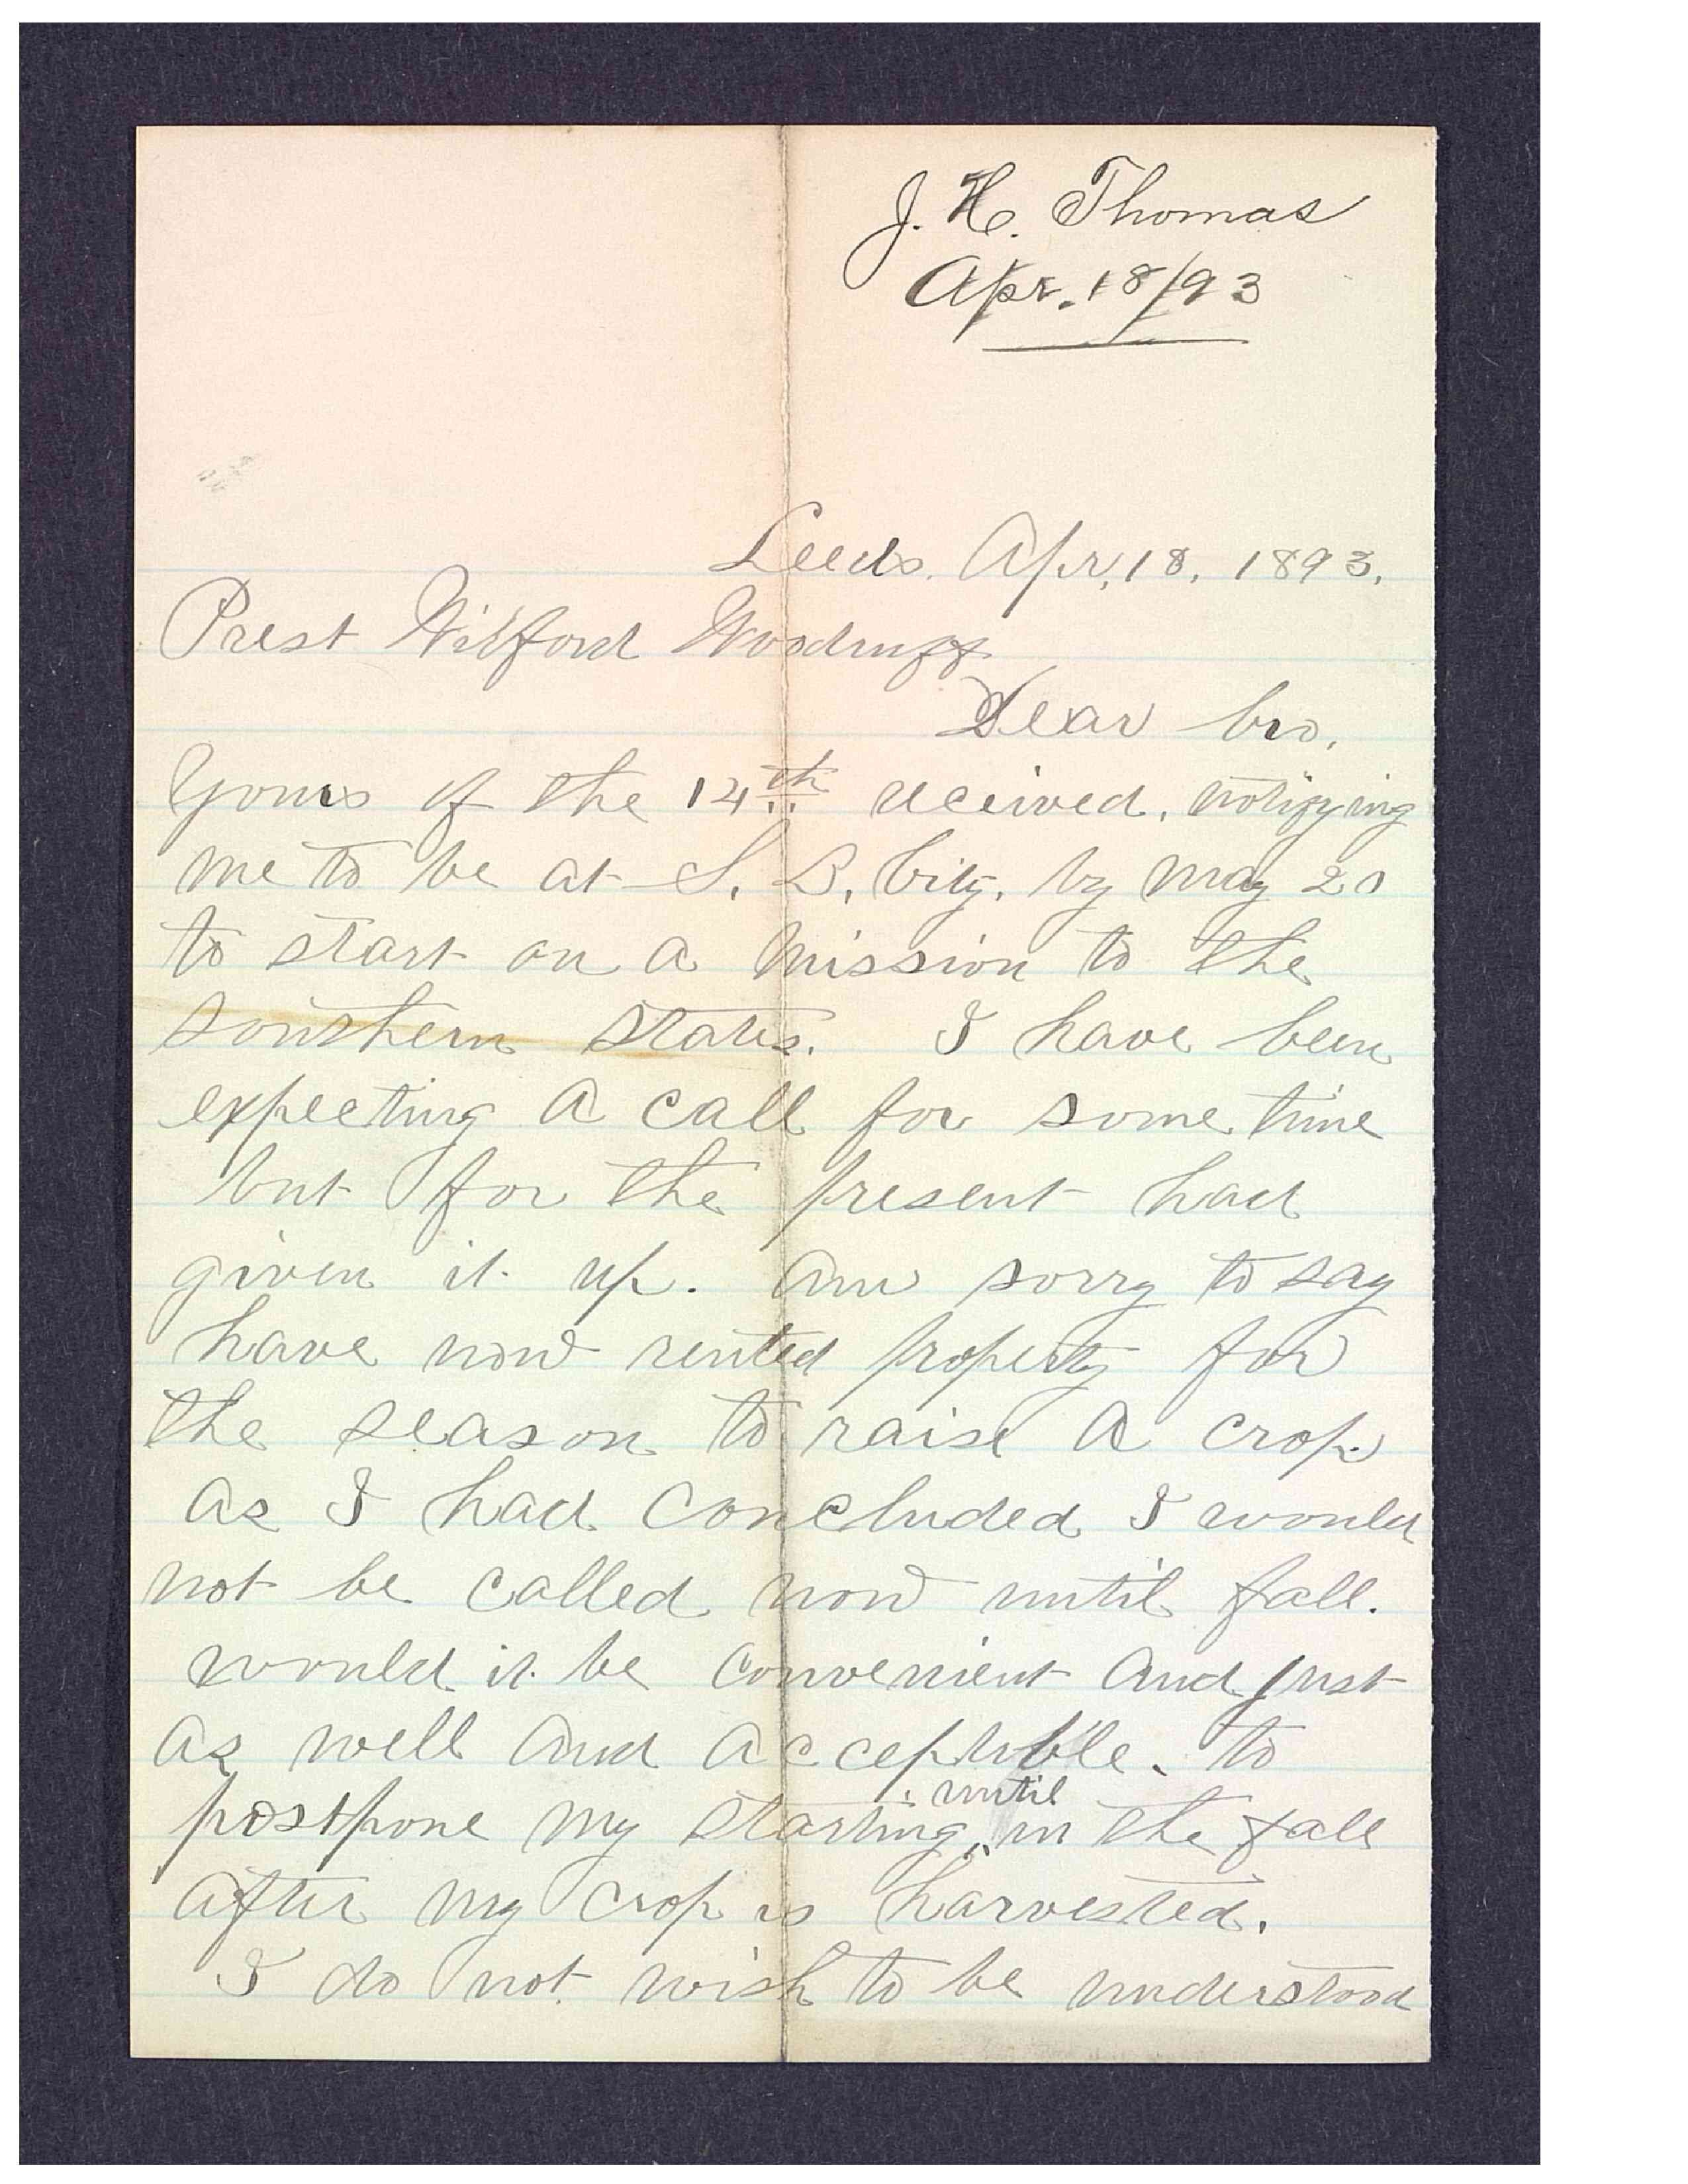 J. H. Thomas
Apr. 18/93
Leeds. Apr, 18, 1893.
Prest Wilford Woodruff
Dear bro.
Yours of the 14th received, notifying
me to be at S. L. City, by may 20
to start on a mission to the
southern states. I have been
expecting a call for some time
but for the present had
given it up. am sorry to say
have now rented property for
the season to raise a crop
as I had concluded I would
not be called now until fall.
would it be convenient and just
as well and acceptible. to
postpone my starting until in the fall
after my crop is harvested.
I do not wish to be understood